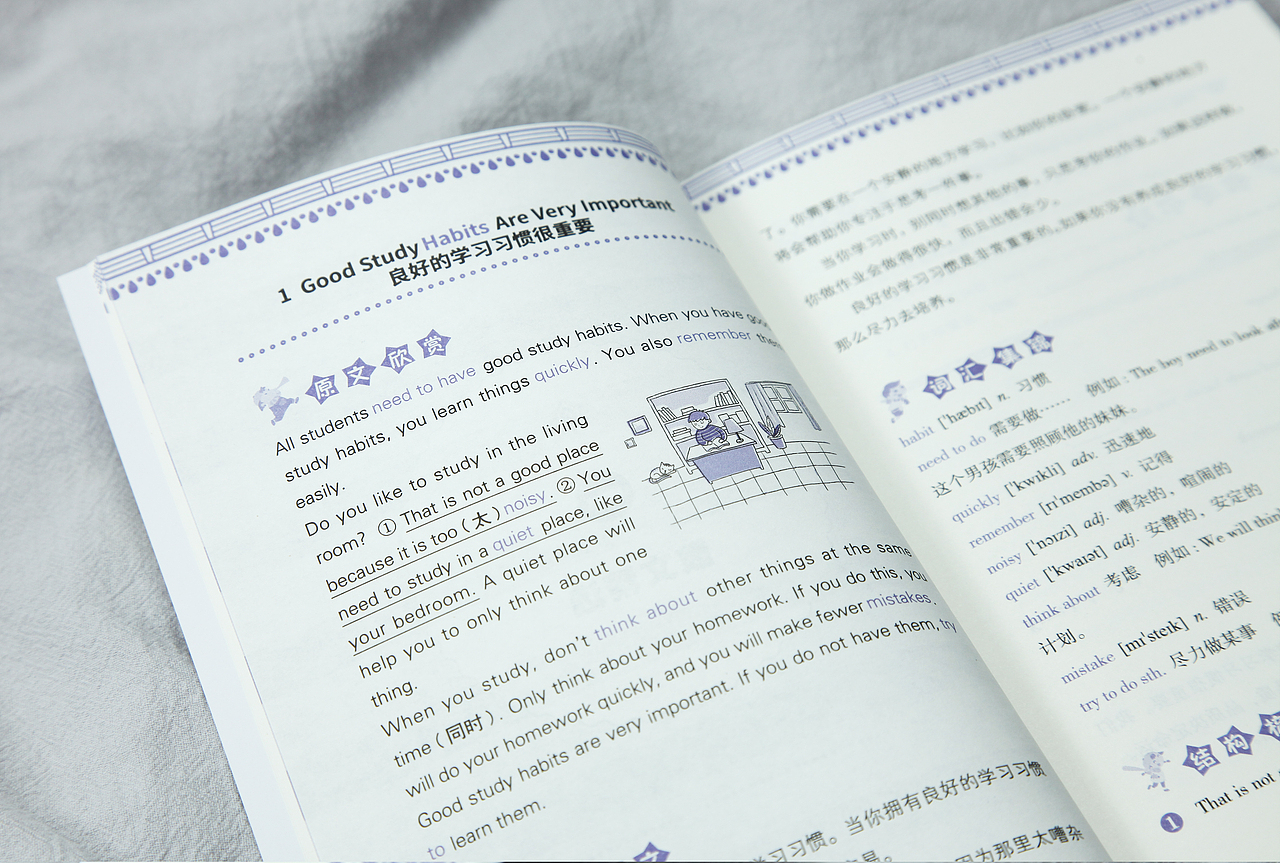 1 Good Study Habits Are Very Important
良好的学习习惯很重要
原文欣赏
All students need to have good study habits. When you have good
study habits, you learn things quickly. You also remember them
easily.
Do you like to study in the living
room? ① That is not a good place
because it is too (太) noisy. ② You
need to study in a quiet place, like
your bedroom. A quiet place will
help you to only think about one
thing.
When you study, don't think about other things at the same
time (同时). Only think about your homework. If you do this, you
will do your homework quickly, and you will make fewer mistakes.
Good study habits are very important. If you do not have them, try
to learn them.
文
学习习惯。当你拥有良好的学习习惯
易。
因为那里太嘈杂
了。你需要在一个安静的地方学习，
将会帮助你专注于思考一件事。
当你学习时，别同时想其他的事，只思考你的作业。如果这样做，
你做作业会做得很快，而且出错会少。
良好的学习习惯是非常重要的。如果你没有养成良好的学习习惯，
那么尽力去培养。
词汇集锦
habit ['hæbɪt] n. 习惯
need to do 需要做…… 例如：The boy need to look
这个男孩需要照顾他的妹妹。
quickly ['kwɪkli] adv. 迅速地
remember [rɪ'membə] v. 记得
noisy ['nɔɪzi] adj. 嘈杂的，喧闹的
quiet ['kwaɪət] adj. 安静的，安定的
think about 考虑 例如：We will think
计划。
mistake [mɪ'steɪk] n. 错误
try to do sth. 尽力做某事
结构
1 That is not